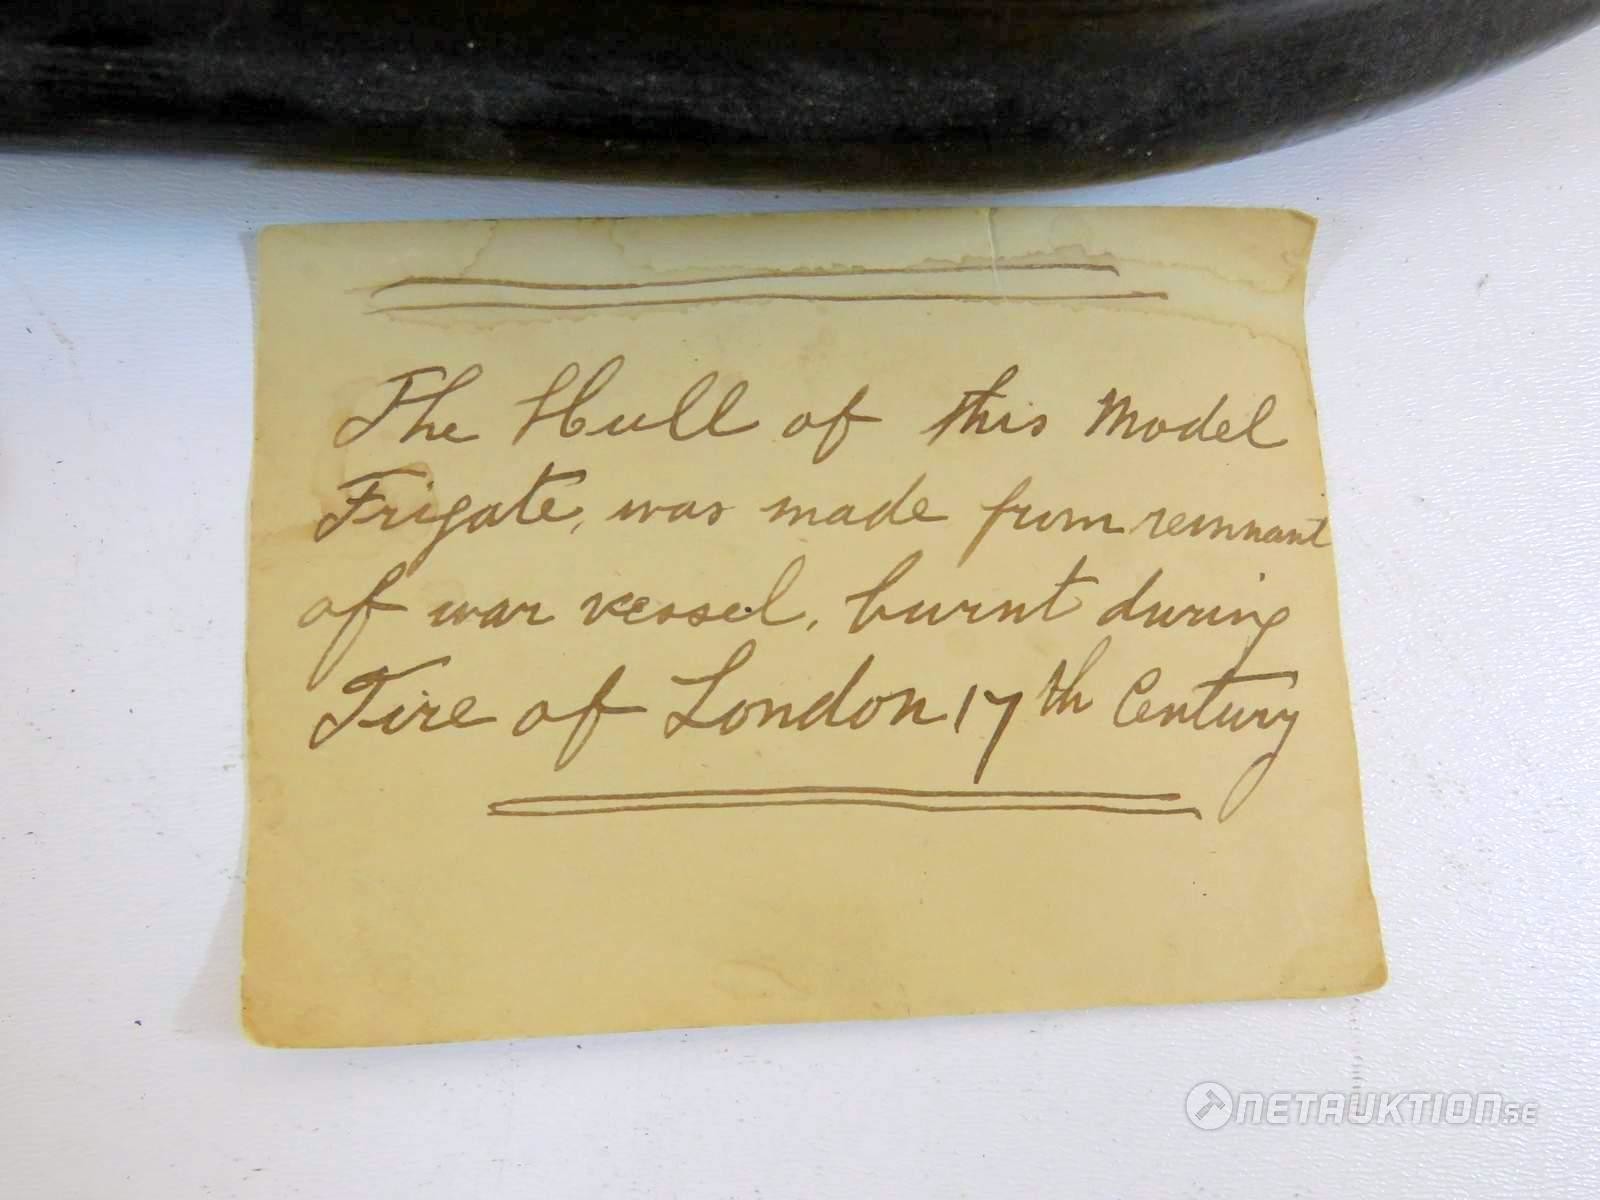 The Hull of this Model
Frigate, was made from remnant
of war vessel, burnt during
Fire of London 17th Century
NETAUKTION.SE